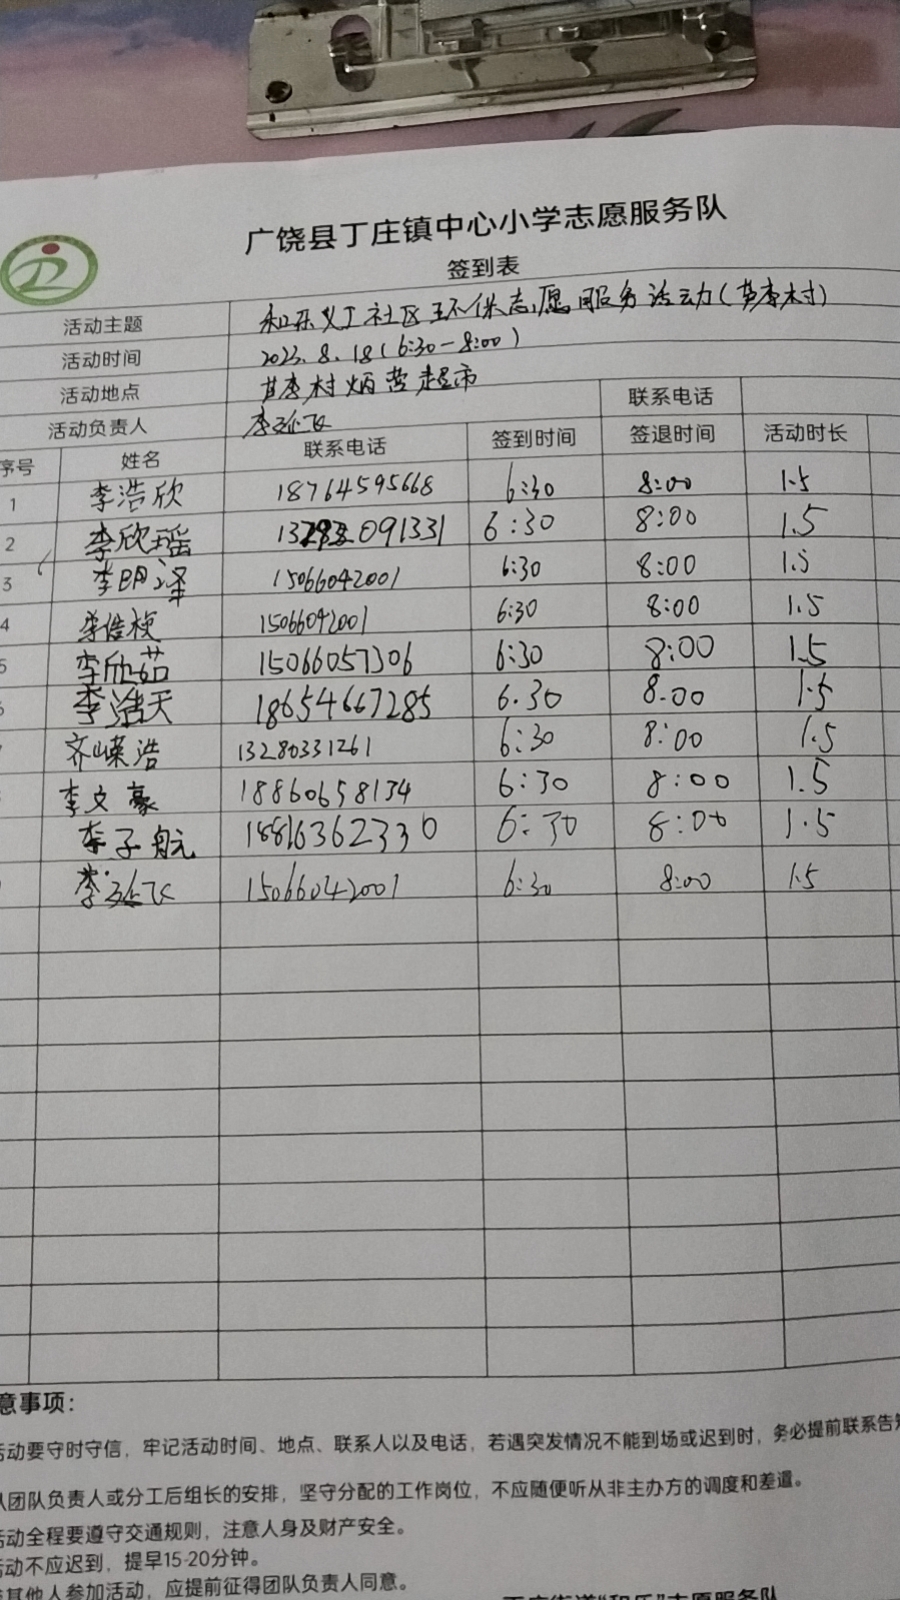 广饶县丁庄镇中心小学志愿服务队
签到表
活动主题 和乐义丁社区环保志愿服务活动(甘李村)
活动时间 2023.8.18(6:30-8:00)
活动地点 甘李村炳营超市
活动负责人 李延飞 联系电话
序号 姓名 联系电话 签到时间 签退时间 活动时长
1 李浩欣 18764595668 6:30 8:00 1.5
2 李欣瑶 091331 6:30 8:00 1.5
3 李明泽 15066042001 6:30 8:00 1.5
4 李俊梗 15066042001 6:30 8:00 1.5
5 李欣茹 15066057306 6:30 8:00 1.5
李浩天 18654667285 6.30 8.00 1.5
齐嵘浩 13280331261 6:30 8:00 1.5
李文豪 18860658134 6:30 8:00 1.5
李子航 18816362330 6:30 8:00 1.5
李延飞 15066042001 6:30 8:00 1.5
意事项:
活动要守时守信，牢记活动时间、地点、联系人以及电话，若遇突发情况不能到场或迟到时，务必提前联系告知
从团队负责人或分工后组长的安排，坚守分配的工作岗位，不应随便听从非主办方的调度和差遣。
活动全程要遵守交通规则，注意人身及财产安全。
活动不应迟到，提早15-20分钟。
其他人参加活动，应提前征得团队负责人同意。
街道“和乐”志愿服务队